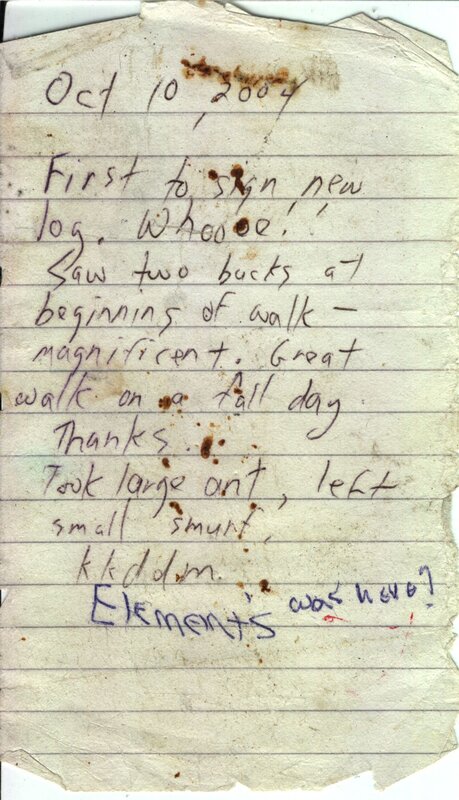 Oct 10, 2004
First to sign new
log. Whoooe!!
Saw two bucks at
beginning of walk -
magnificent. Great
walk on a fall day.
Thanks.
Took large ant, left
small smurf.
kkddm.
Elements was here!